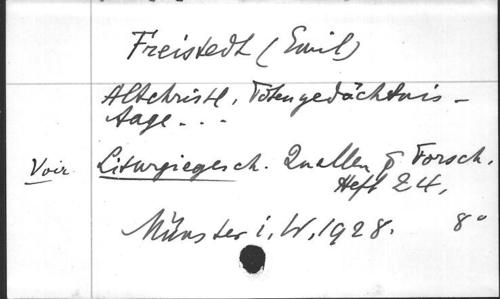 Freistedt (Emil)
Altchristl. Totengedächtnis-
tage...
Voir Liturgiegesch. Quellen & Forsch.
Heft 24,
Münster i. W, 1928. 8°